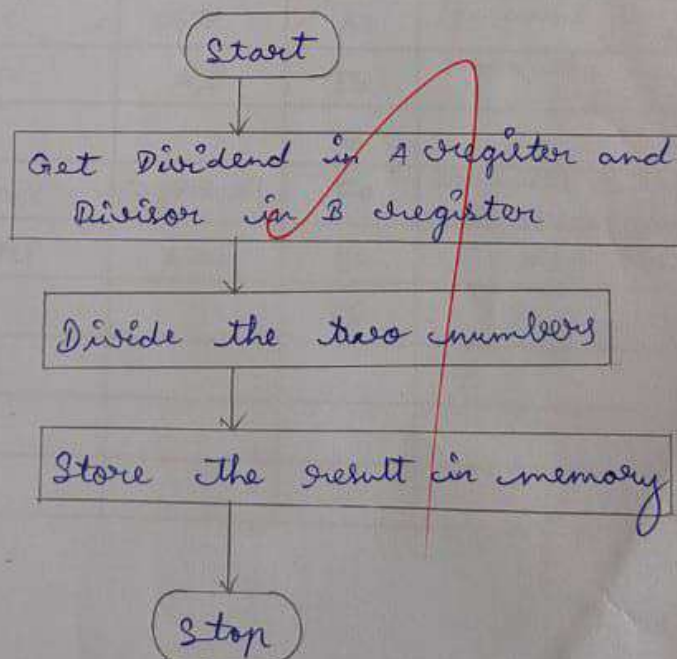 Start
Get Dividend in A register and
Divisor in B register
Divide the two numbers
Store the result in memory
Stop